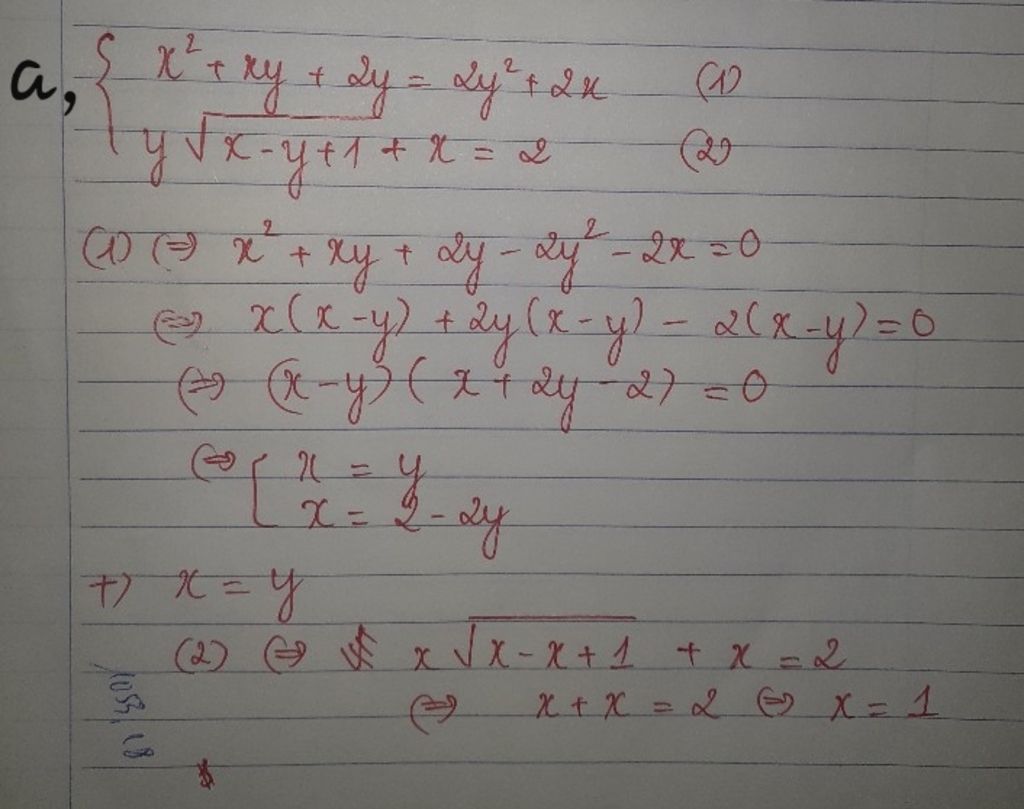 a, { x² + xy + 2y = 2y² + 2x (1)
y √(x-y+1) + x = 2 (2)
(1) ⇔ x² + xy + 2y - 2y² - 2x = 0
⇔ x(x-y) + 2y(x-y) - 2(x-y) = 0
⇔ (x-y)(x + 2y - 2) = 0
⇔ [ x = y
x = 2 - 2y
+) x = y
(2) ⇔ x √(x-x+1) + x = 2
⇔ x + x = 2 ⇔ x = 1